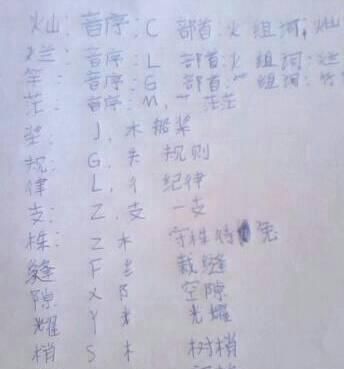 灿：音序：C 部首：火 组词：灿
烂：音序：L 部首：火 组词：
竿：音序：G 部首：⺮ 组词：竹
茫：音序：M，艹 茫茫
桨 J，木 船桨
规：G，夫 规则
律 L，彳 纪律
支：Z，支 一支
株：Z 木 守株待兔
缝 F 纟 裁缝
隙 X 阝 空隙
耀 Y 光耀
梢 S 木 树梢